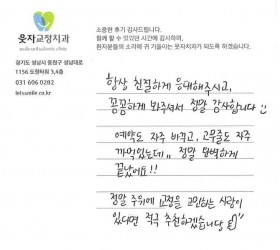 웃자교정치과
소중한 후기 감사드립니다.
함께 할 수 있었던 시간에 감사하며,
환자분들의 소리에 귀 기울이는 웃자치과가 되도록 하겠습니다.
경기도 성남시 중원구 성남대로
1156 도창타워 3,4층
031 606 0282
letsmile.co.kr
항상 친절하게 응대해주시고,
꼼꼼하게 봐주셔서 정말 감사합니다
예약도 자주 바꾸고, 고무줄도 자주
까먹었는데,, 정말 완벽하게
끝났어요!!
정말 주위에 교정을 고민하는 사람이
있다면 적극 추천하겠습니당